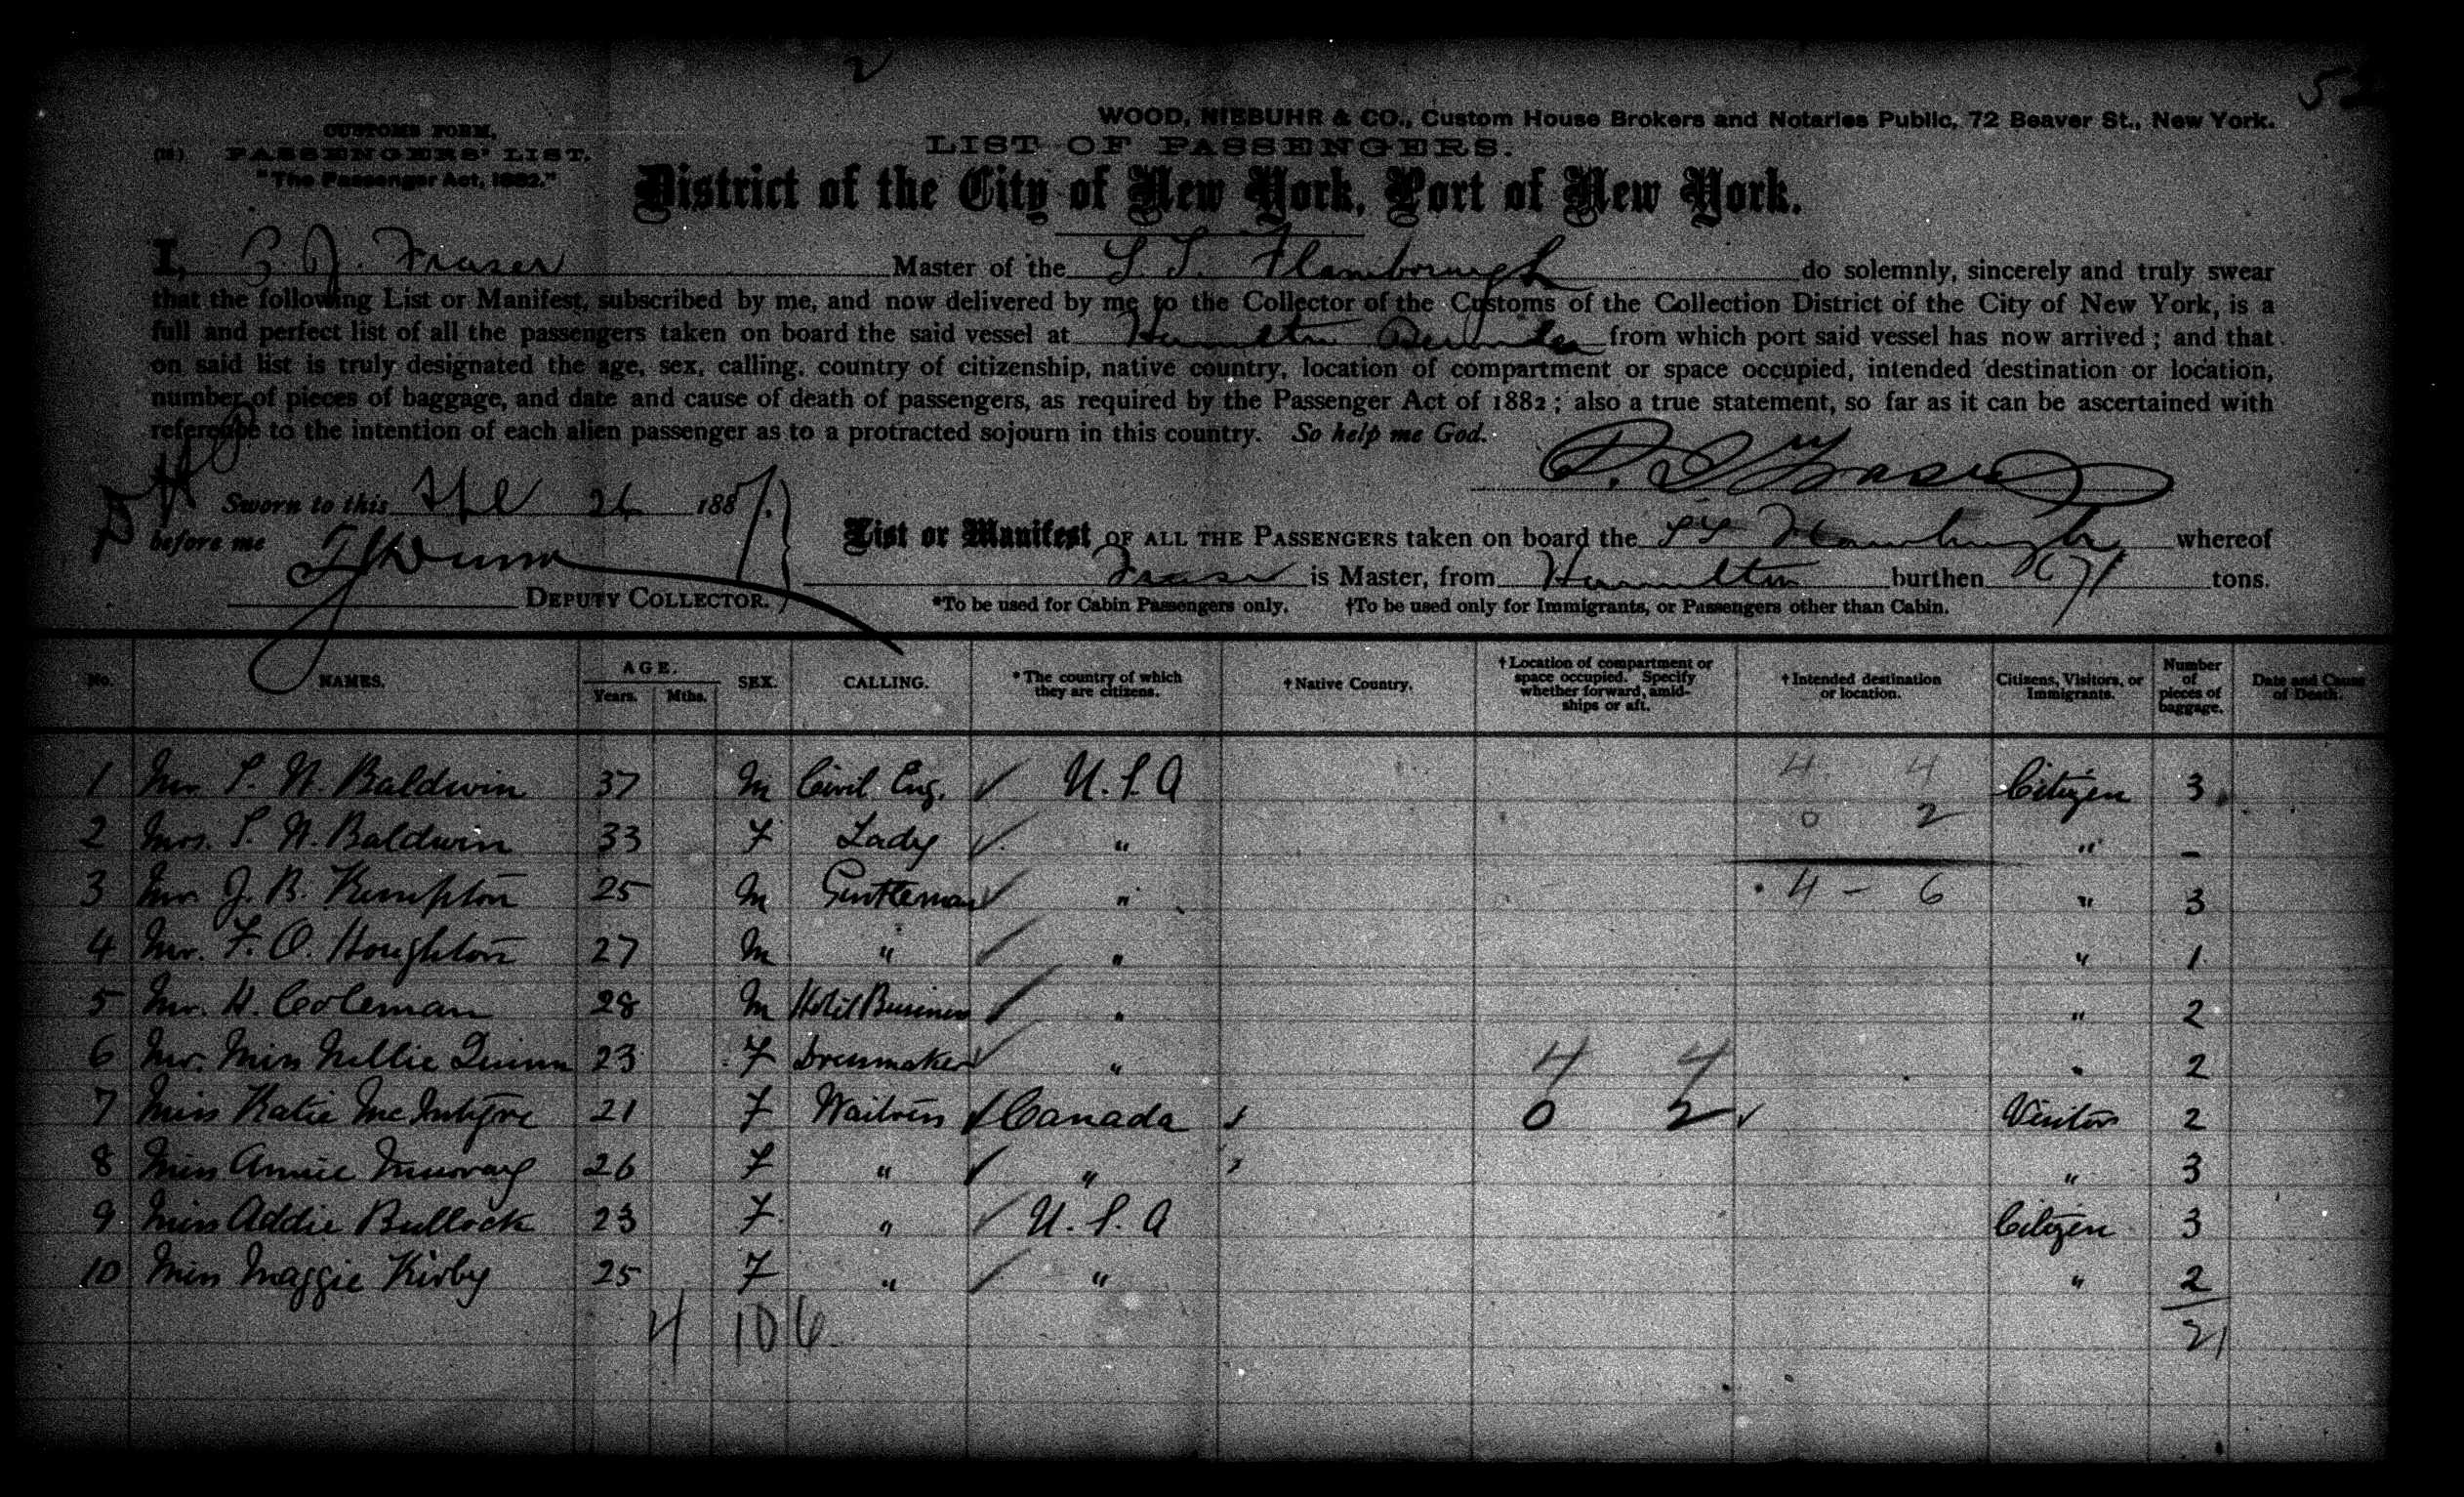 2
52
WOOD, NIEBUHR & CO., Custom House Brokers and Notaries Public, 72 Beaver St., New York.
CUSTOMS FORM.
PASSENGERS' LIST.
"The Passenger Act, 1882."
LIST OF PASSENGERS.
District of the City of New York, Port of New York.
I, Fraser Master of the S. S. Flamborough do solemnly, sincerely and truly swear
that the following List or Manifest, subscribed by me, and now delivered by me to the Collector of the Customs of the Collection District of the City of New York, is a
full and perfect list of all the passengers taken on board the said vessel at Hamilton Bermuda from which port said vessel has now arrived; and that
on said list is truly designated the age, sex, calling, country of citizenship, native country, location of compartment or space occupied, intended destination or location,
number of pieces of baggage, and date and cause of death of passengers, as required by the Passenger Act of 1882; also a true statement, so far as it can be ascertained with
reference to the intention of each alien passenger as to a protracted sojourn in this country. So help me God.
Fraser
Sworn to this Apl 26 1887.
before me
DEPUTY COLLECTOR.
List or Manifest OF ALL THE PASSENGERS taken on board the SS Flamborough whereof
Fraser is Master, from Hamilton burthen 671 tons.
*To be used for Cabin Passengers only. †To be used only for Immigrants, or Passengers other than Cabin.
No. NAMES. AGE. Years. Mths. SEX. CALLING. *The country of which they are citizens. †Native Country. †Location of compartment or space occupied. Specify whether forward, amidships or aft. †Intended destination or location. Citizens, Visitors, or Immigrants. Number of pieces of baggage. Date and Cause of Death.
1 Mr. S. W. Baldwin 37 M Civil Eng. ✓ U.S.A 4 4 Citizen 3
2 Mrs. S. W. Baldwin 33 F Lady ✓ " 0 2 " –
3 Mr. J. B. Kempton 25 M Gentleman ✓ " 4 – 6 " 3
4 Mr. F. O. Houghton 27 M " ✓ " " 1
5 Mr. H. Coleman 28 M Hotel Business ✓ " " 2
6 Mr. Miss Nellie Quinn 23 F Dressmaker ✓ " 4 4 " 2
7 Miss Katie McIntyre 21 F Waitress ✓ Canada 0 2 ✓ Visitor 2
8 Miss Annie Murray 26 F " ✓ " " 3
9 Miss Addie Bullock 23 F " ✓ U.S.A Citizen 3
10 Miss Maggie Kirby 25 F " ✓ " " 2
4 10 6 21